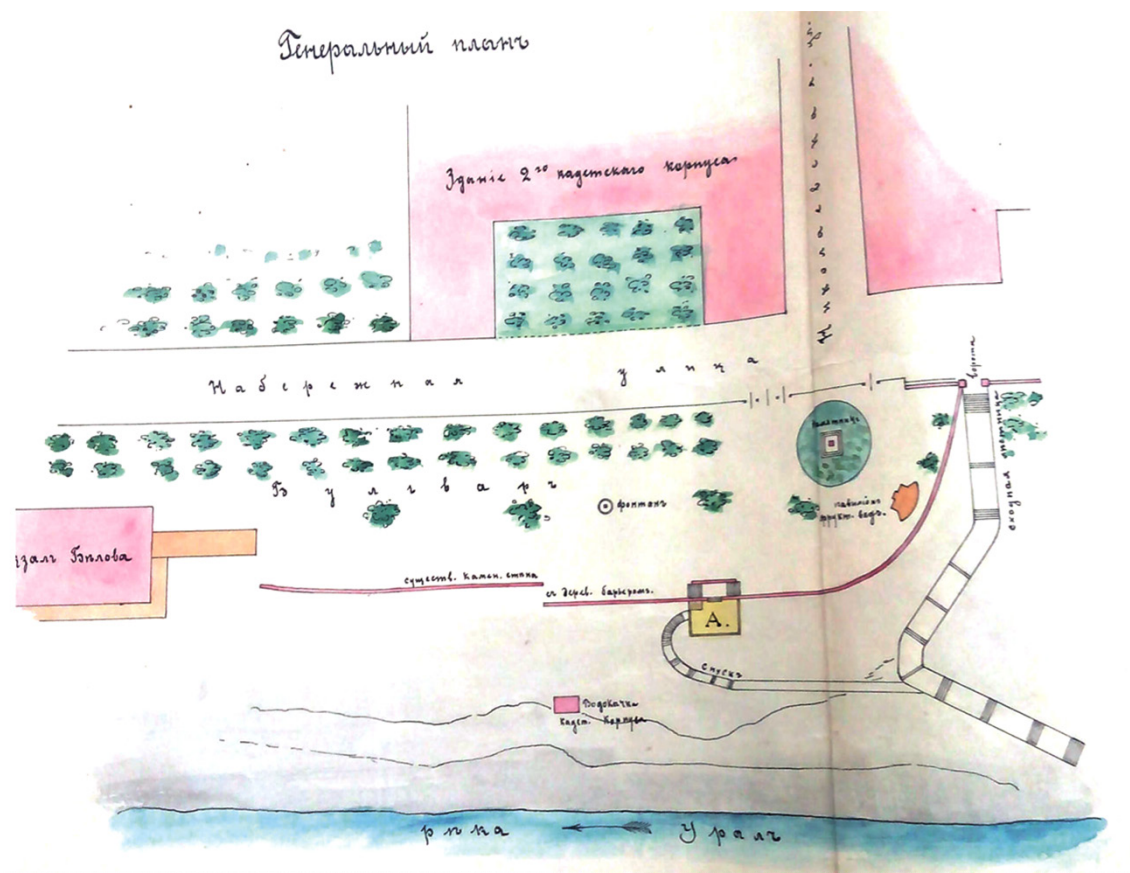 Генеральный планъ
Зданіе 2го кадетскаго корпуса
Набережная улица
ворота
памятникъ
Бульваръ
фонтанъ
павильонъ
фрукт. водъ.
сходная лѣстница
залъ Бѣлова
существ. камен. стѣна
съ дерев. барьеромъ.
А.
спускъ
Водокачка
кадет. Корпуса
рѣка Уралъ